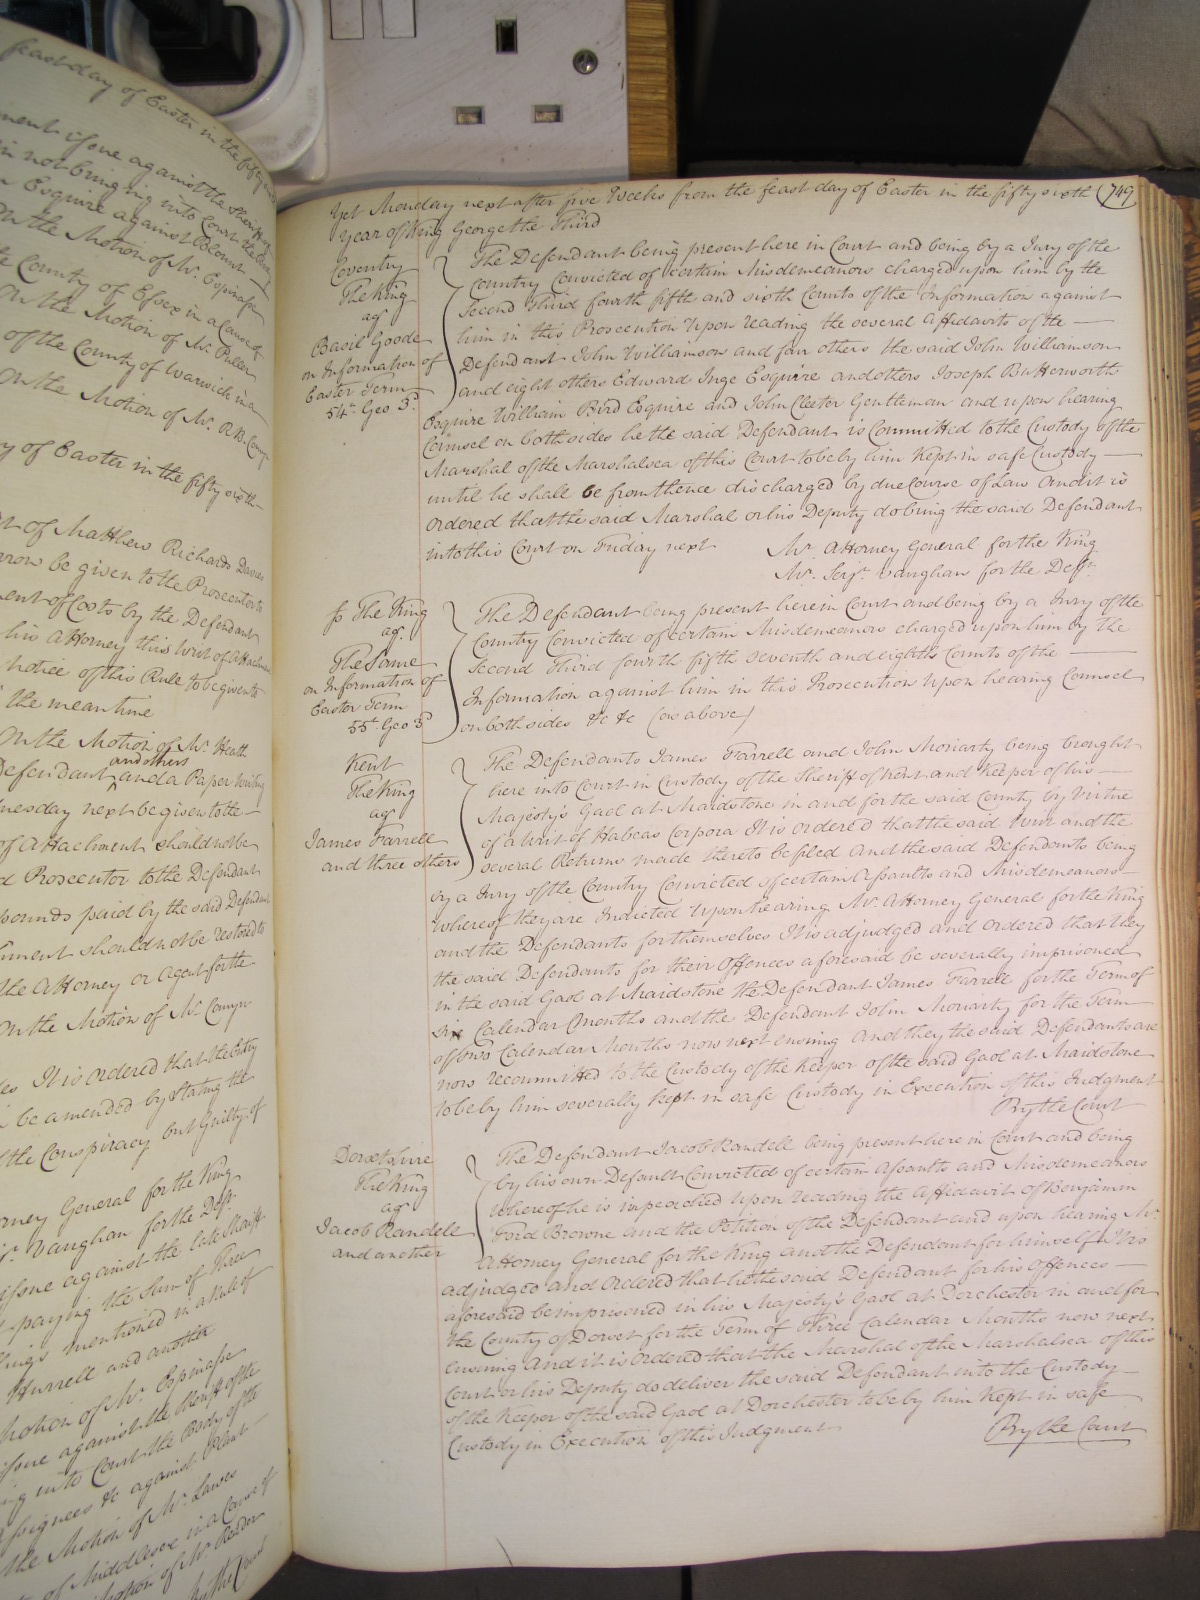 feast day of Easter in the fifty
issue against the Sheriff of
in not bring in into Court the Body
Esquire against Blount
On the Motion of Mr. Espinasse
County of Essex in a Cause of
On the Motion of Mr. Puller
of the County of Warwick in a
On the Motion of Mr. R.B. Comyn
y of Easter in the fifty sixth
of Matthew Richards Davies
row be given to the Prosecutor to
ment of Costs by the Defendant
his Attorney this Writ of Attachment
notice of this Rule to be given to
the mean time
On the Motion of Mr. Heath
and others
Defendant and a Paper Writing
Tuesday next be given to the
of Attachment should not be
d Prosecutor to the Defendant
pounds paid by the said Defendant
hment should not be restored to
the Attorney or Agent for the
On the Motion of Mr. Comyn
es It is ordered that the Entry
be amended by Stating the
the Conspiracy but Guilty of
rney General for the King
Vaughan for the Deft.
issue against the late Sheriff
paying the Sum of Three
mentioned in a Rule of
Hurrell and another
Motion of Mr. Espinasse
issue against the Sheriff of the
ing into Court the Body of the
Assignees &c against Plant
the Motion of Mr. Lawes
of Middlesex in a Cause of
Motion of Mr. Reader
By the Court
Yet Monday next after five Weeks from the feast day of Easter in the fifty sixth 749
Year of King George the Third
Coventry
The King
agt
Basil Goode
on Information of
Easter Term
54th. Geo 3d.
The Defendant being present here in Court and being by a Jury of the
Country Convicted of certain Misdemeanors charged upon him by the
Second Third fourth fifth and sixth Counts of the Information against
him in this Prosecution Upon reading the several Affidavits of the
Defendant John Williamson and four others the said John Williamson
and eight others Edward Inge Esquire and others Joseph Butterworth
Esquire William Bird Esquire and John Cleeter Gentleman and upon hearing
Counsel on both sides he the said Defendant is Committed to the Custody of the
Marshal of the Marshalsea of this Court to be by him Kept in safe Custody
until he shall be from thence discharged by due Course of Law And it is
ordered that the said Marshal or his Deputy do bring the said Defendant
into this Court on Friday next
Mr. Attorney General for the King
Mr. Serjt. Vaughan for the Deft.
So The King
agt.
The Same
on Information of
Easter Term
55th. Geo 3d
The Defendant being present here in Court and being by a Jury of the
Country Convicted of certain Misdemeanors charged upon him by the
Second Third fourth fifth seventh and eighth Counts of the
Information against him in this Prosecution Upon hearing Counsel
on both sides &c &c (as above)
Kent
The King
agt
James Farrell
and three others
The Defendants James Farrell and John Moriarty being brought
here into Court in Custody of the Sheriff of Kent and Keeper of his
Majesty's Gaol at Maidstone in and for the said County by Virtue
of a Writ of Habeas Corpora It is ordered that the said Writ and the
several Returns made thereto be filed And the said Defendants being
by a Jury of the Country Convicted of certain Assaults and Misdemeanors
whereof they are Indicted Upon hearing Mr. Attorney General for the King
and the Defendants for themselves It is adjudged and ordered that they
the said Defendants for their Offences aforesaid be severally imprisoned
in the said Gaol at Maidstone the Defendant James Farrell for the Term of
six Calendar Months and the Defendant John Moriarty for the Term
of two Calendar Months now next ensuing And they the said Defendants are
now recommitted to the Custody of the Keeper of the said Gaol at Maidstone
to be by him severally kept in safe Custody in Execution of this Judgment
By the Court
Dorsetshire
The King
agt
Jacob Randell
and another
The Defendant Jacob Randell being present here in Court and being
by his own Default Convicted of certain Assaults and Misdemeanors
whereof he is impeached Upon reading the Affidavit of Benjamin
Ford Browne and the Petition of the Defendant and upon hearing Mr.
Attorney General for the King and the Defendant for himself It is
adjudged and Ordered that he the said Defendant for his Offences
aforesaid be imprisoned in his Majesty's Gaol at Dorchester in and for
the County of Dorset for the Term of Three Calendar Months now next
ensuing And it is Ordered that the Marshal of the Marshalsea of this
Court or his Deputy do deliver the said Defendant into the Custody
of the Keeper of the said Gaol at Dorchester to be by him Kept in safe
Custody in Execution of this Judgment
By the Court